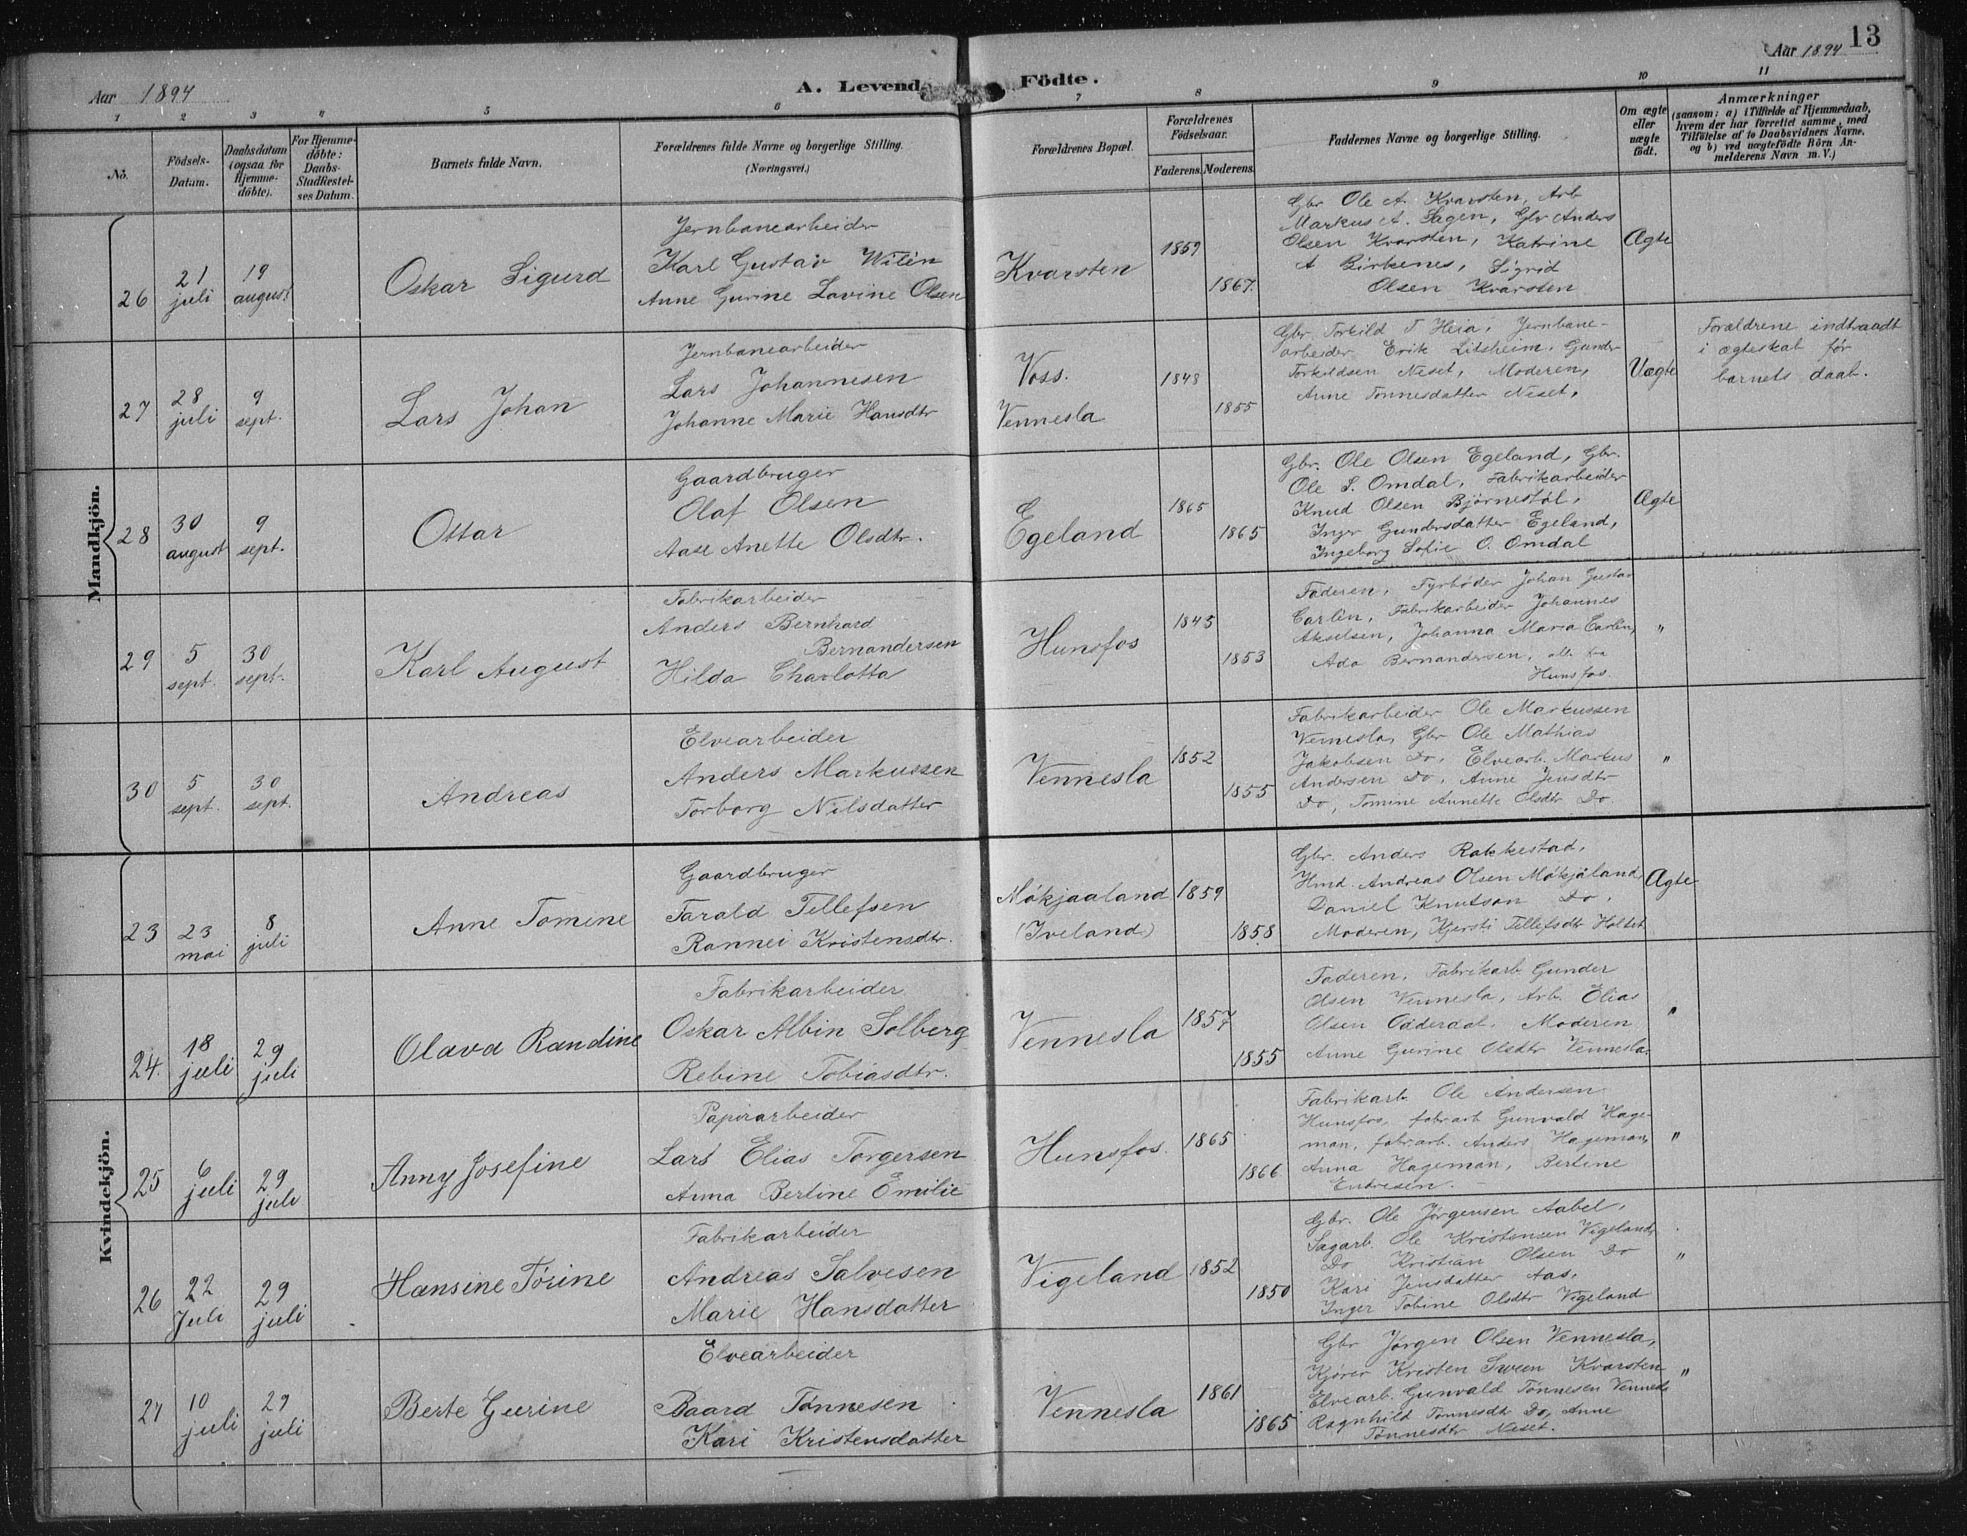 13
Aar 1894
A. Levende Födte.
Aar 1894
1 2 3 4 5 6 7 8 9 10 11
No.
Födsels-Datum.
Daabsdatum (ogsaa for Hjemme-döbte).
For Hjemme-döbte: Daabs-Stadfæstel-ses Datum.
Barnets fulde Navn.
Forældrenes fulde Navne og borgerlige Stilling.
(Næringsvei.)
Forældrenes Bopæl.
Forældrenes Födselsaar.
Faderens. Moderens.
Faddernes Navne og borgerlige Stilling.
Om ægte eller uægte födt.
Anmærkninger
(saasom: a) i Tilfælde af Hjemmedaab,
hvem der har forrettet samme, med
Tilföielse af to Daabsvidners Navne,
og b) ved uægtefödte Börn An-
melderens Navn m. V.)
Mandkjön.
26
21 juli
19 august
Oskar Sigurd
Jernbanearbeider
Karl Gustav Wilén
Anne Gurine Lovine Olsen
Kvarsten
1859
1867.
Gbr Ole A. Kvarsten, Arb
Markus A. Sagen, Gbr Anders
Olsen Kvarsten, Katrine
A Birkenes, Sigrid
Olsen Kvarsten
Ægte
27
28 juli
9 sept.
Lars Johan
Jernbanearbeider
Lars Johannesen
Johanne Marie Hansdtr
Voss.
Vennesla
1848
1855
Gbr Torkild T Heia, Jernbane-
arbeider Erik Litsheim, Gunder
Torkildsen Neset, Moderen,
Anne Tønnesdatter Neset,
Uægte
Forældrene indtraadt
i ægteskab før
barnets daab.
28
30 august
9 sept.
Ottar
Gaardbruger
Olaf Olsen
Aase Anette Olsdtr.
Egeland
1865
1865
Gbr. Ole Olsen Egeland, Gbr.
Ole S. Omdal, Fabrikarbeider
Knud Olsen Bjørnestøl,
Inger Gundersdatter Egeland,
Ingeborg Sofie O. Omdal
Ægte
29
5 sept.
30 sept.
Karl August
Fabrikarbeider
Anders Bernhard
Bernandersen
Hilda Charlotta
Hunsfos
1845
1853
Faderen, Fyrbøder Johan Gustav
Carlén, Fabrikarbeider Johannes
Akselsen, Johanna Maria Carlén,
Ada Bernandersen, alle fra
Hunsfos.
"
30
5 sept.
30 sept.
Andreas
Elvearbeider
Anders Markussen
Torborg Nilsdatter
Vennesla
1852
1855
Fabrikarbeider Ole Markussen
Vennesla, Gbr Ole Mathias
Jakobsen Do, Elvearb. Markus
Andersen Do, Anne Jensdtr
Do, Tomine Annette Olsdtr Do
"
Kvindekjön.
23
23 mai
8 juli
Anne Tomine
Gaardbruger
Tarald Tellefsen
Rannei Kristensdtr.
Møkjaaland
(Iveland)
1859
1858
Gbr. Anders Rakkestad,
Hmd. Andreas Olsen Møkjåland,
Daniel Knutson Do,
Moderen, Kjersti Tellefsdtr Holtet
Ægte
24.
18 juli
29 juli
Olava Randine
Fabrikarbeider
Oskar Albin Solberg
Rebine Tobiasdtr.
Vennesla
1857
1855
Faderen, Fabrikarb Gunder
Olsen Vennesla, Arb. Elias
Olsen Odderdal. Moderen
Anne Gurine Olsdtr Vennesla.
"
25
6 juli
29 juli
Anny Josefine
Papirarbeider
Lars Elias Torgersen
Anna Bertine Emilie
Hunsfos.
1865
1866
Fabrikarb Ole Andersen
Hunsfos, fabrarb Gunvald Hage-
man, fabrarb. Anders Hageman,
Anna Hageman, Bertine
"
26
22 Juli
29 juli
Hansine Tørine
Fabrikarbeider
Andreas Salvesen
Marie Hansdatter
Vigeland
1852
1850
Gbr. Ole Jørgensen Aabel,
Sagarb. Ole Kristensen Vigeland,
Do Kristian Olsen Do
Kari Jensdatter Aas,
Inger Tobine Olsdtr Vigeland
"
27
10 juli
29 juli
Berte Gurine
Elvearbeider
Baard Tønnesen
Kari Kristensdatter
Vennesla
1861
1865
Gbr Jørgen Olsen Vennesla,
Kjører Kristen Sveen Kvarsten
Elvearb. Gunvald Tønnesen Vennesla
Ragnhild Tønnesdtr Do, Anne
Tønnesdtr Neset.
"